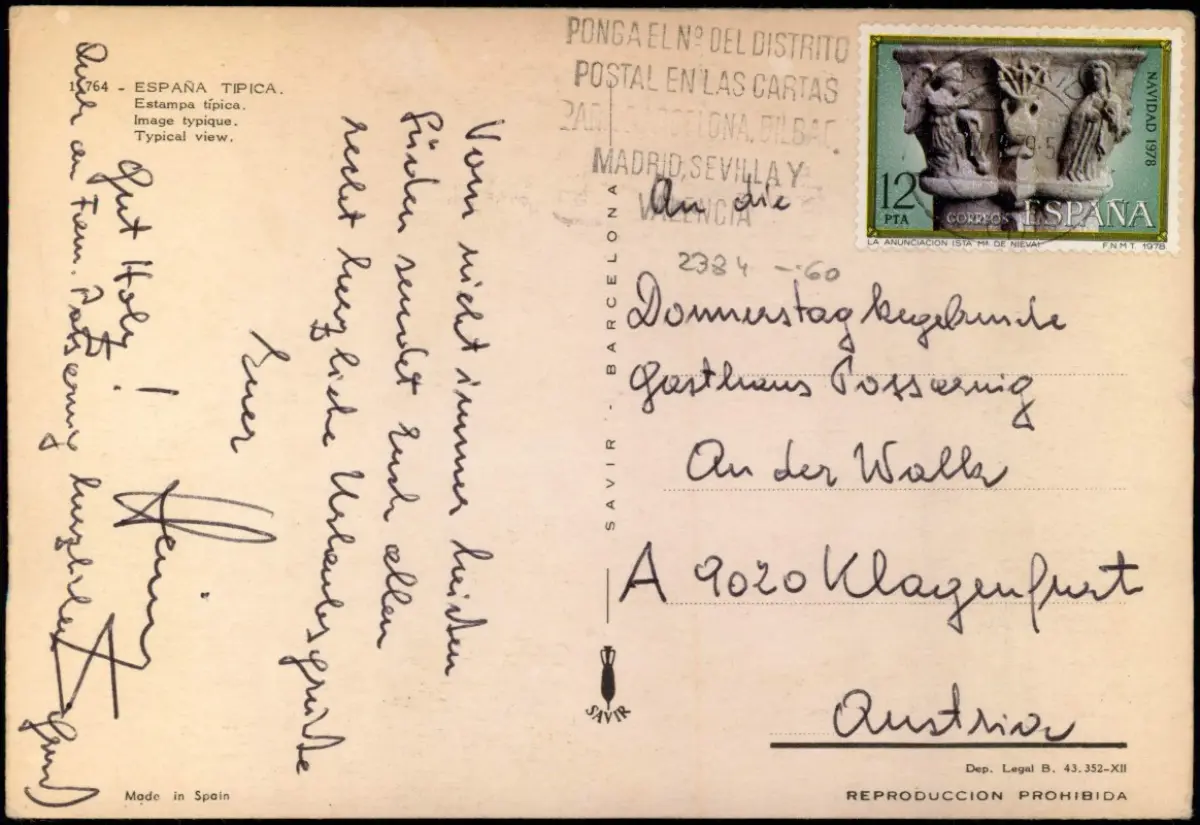 15764 - ESPAÑA TIPICA.
Estampa típica.
Image typique.
Typical view.
Vom nicht immer heißen
Süden sendet Euch allen
recht herzliche Urlaubsgrüße
Euer
Gut Holz!
Auch an Fam. Possarnig herzlichen
Gruß
Made in Spain
SAVIR - BARCELONA
SAVIR
PONGA EL Nº DEL DISTRITO
POSTAL EN LAS CARTAS
PARA BARCELONA, BILBAO,
MADRID, SEVILLA Y
VALENCIA
NAVIDAD 1978
12
PTA
CORREOS ESPAÑA
LA ANUNCIACION (STA Mª DE NIEVA)
F.N.M.T. 1978
An die
2384 -.60
Donnerstagkegelrunde
Gasthaus Possarnig
An der Walk
A 9020 Klagenfurt
Austria
Dep. Legal B. 43.352-XII
REPRODUCCION PROHIBIDA